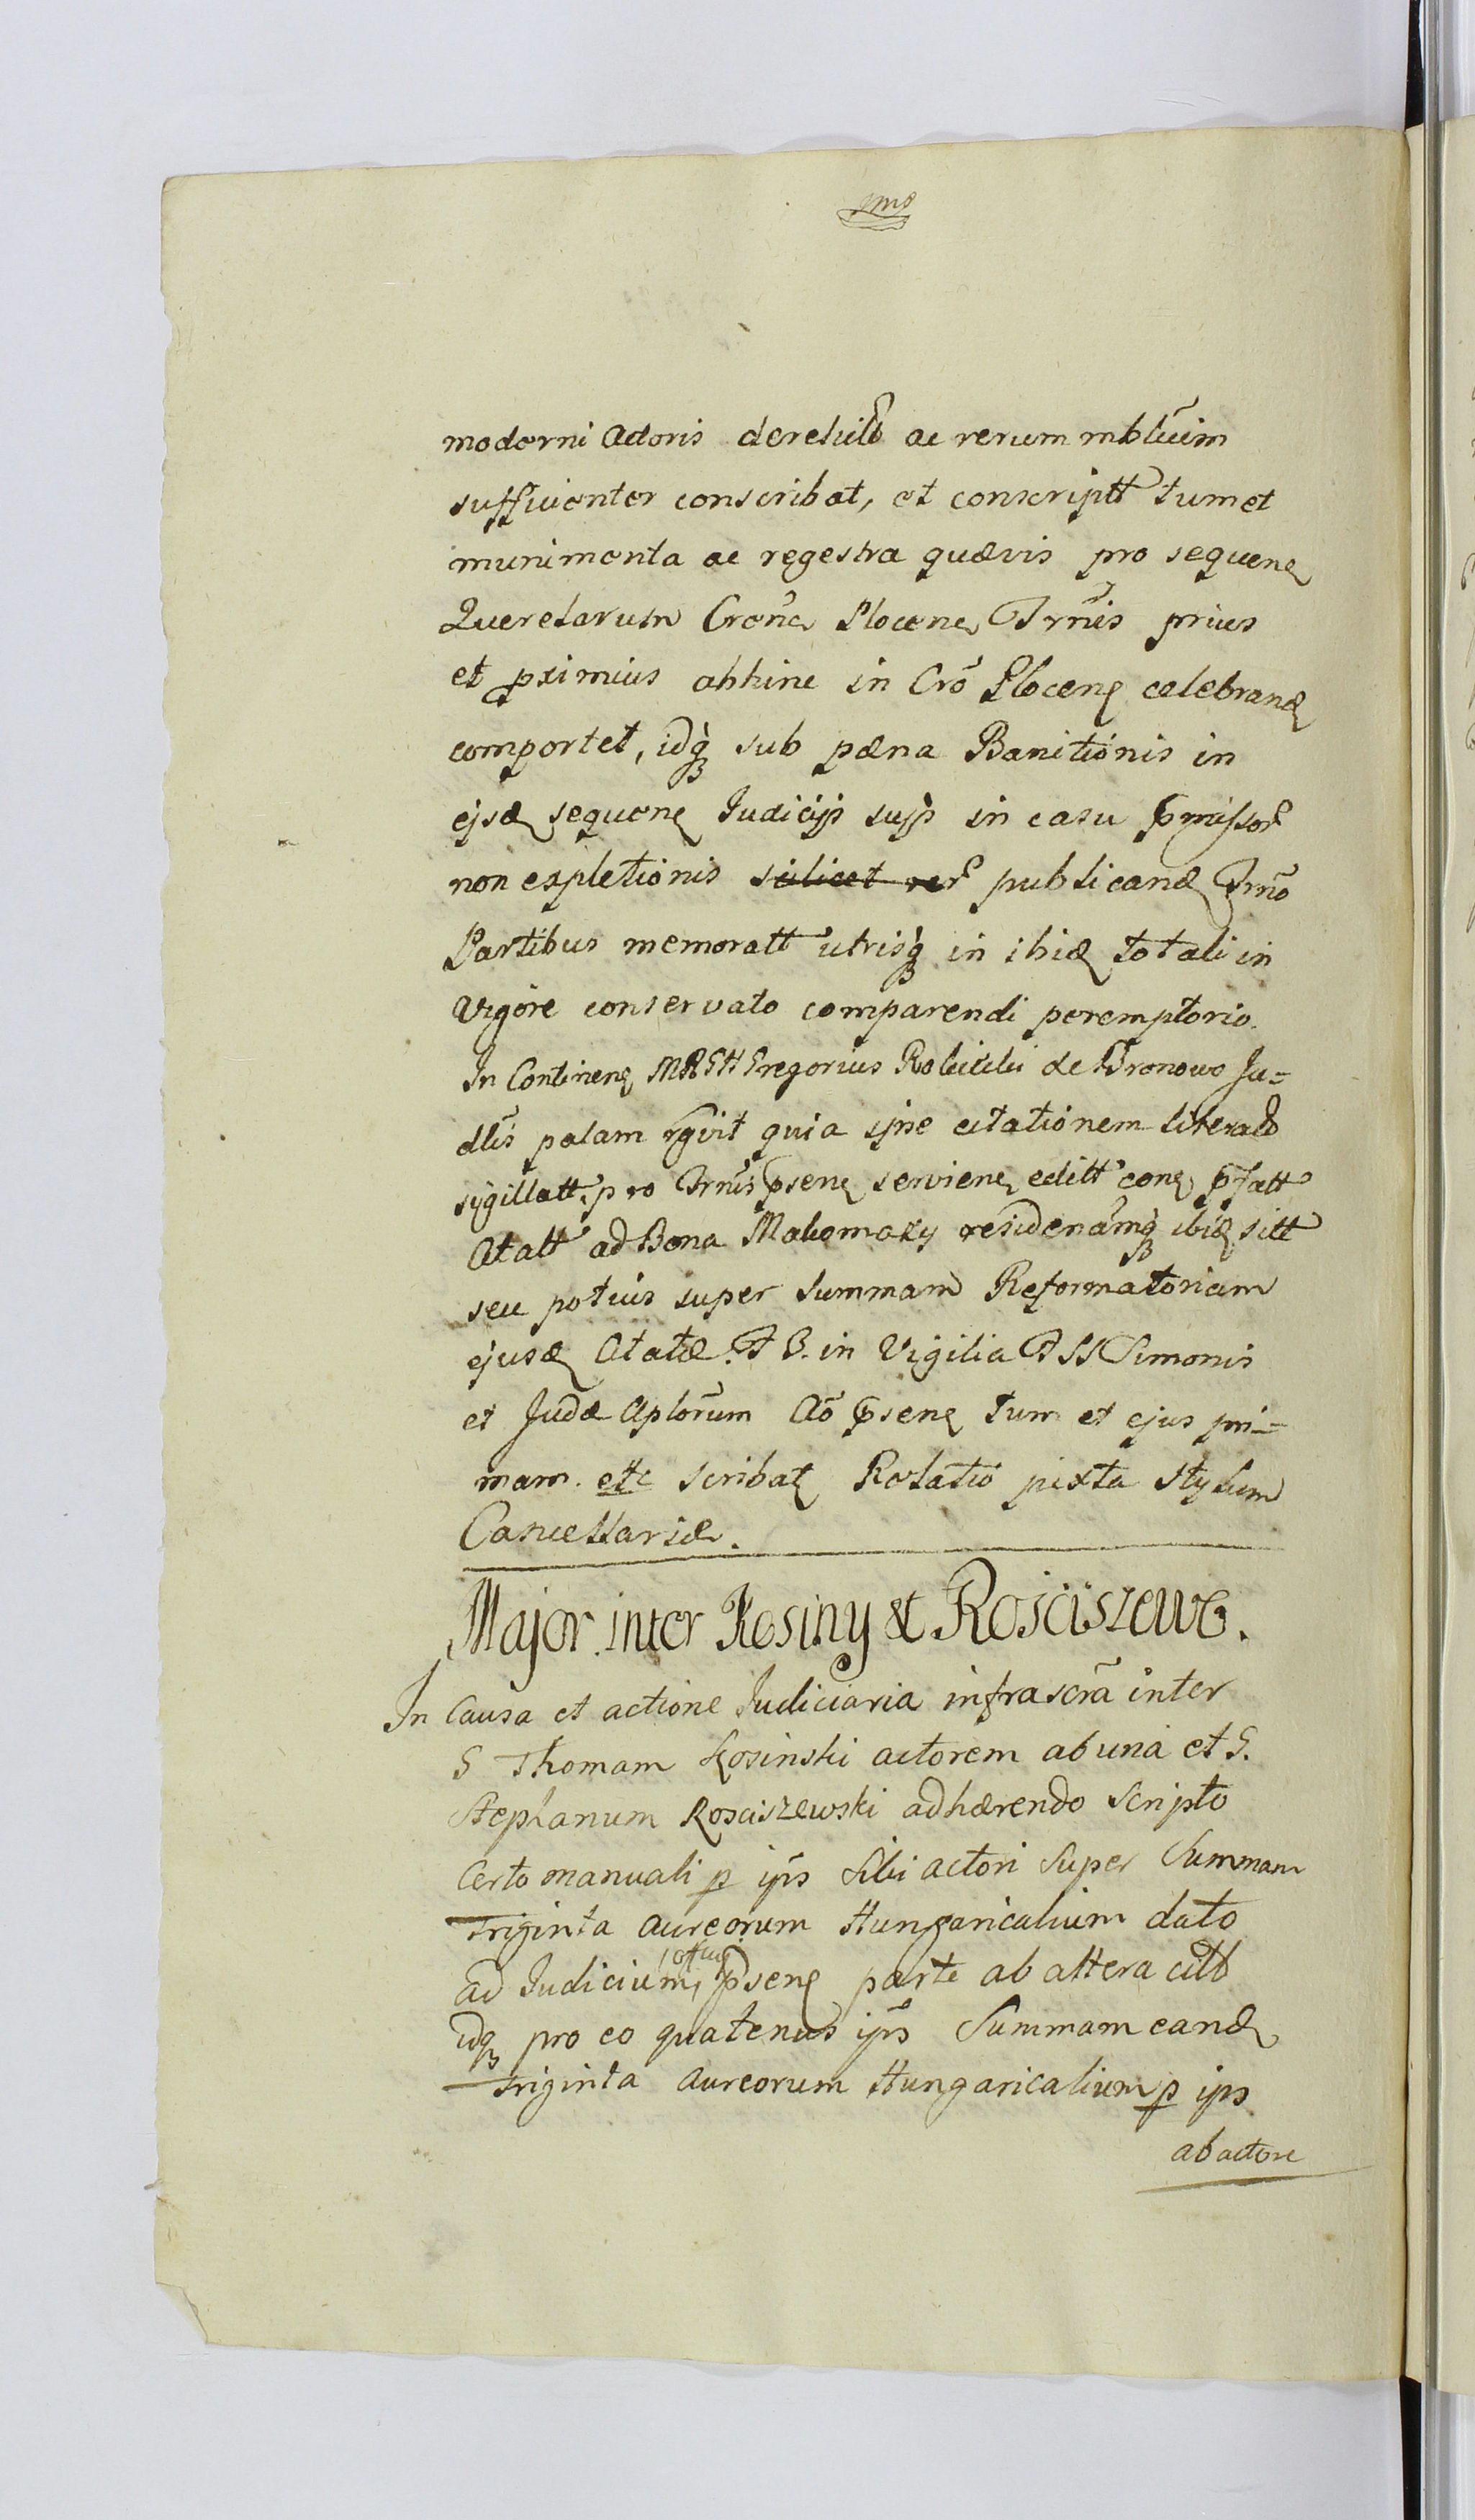 moderni Actoris derelict ac rerum mblium
sufficienter conscribat, et conscriptt tum et
munimenta ac regestra quævis pro sequen
Querelarum Cron Plocen Trnis prius
et pximius abhinc in Cro Plocen celebrand
comportet, idq sub pæna Banitionis in
ejsd sequen Judicijs sujs in casu pmissor
non expletionis scilicet rer publicand Trno
Partibus memoratt utrisq in ibid totali in
vigore conservato comparendi peremptorio.
In Continen MRGH Gregorius de Dronowo Ju=
dlis palam rgvit quia ipse citationem literald
sigillatt pro Trnis psen servien editt con pfatt
Ctatt ad Bona Malomaky residenamq ibid sitt
seu potius super Summam Reformatoriam
ejusd Ctatæ. F 3. in Vigilia F SS Simonis
et Judæ Aplorum Ao psen tum et ejus pri=
mam. etc scribat Relatio juxta Stylum
Cancellariæ.
Major inter Kosiny & Rosciszews.
In Causa et actione Judiciaria infrascra inter
G Thomam Kosinski actorem ab una et G.
Stephanum Rosciszewski adhærendo Scripto
Certo manuali p ips Sibi actori Super Summam
Triginta aureorum Hungaricalium dato
ad Judicium psen parte ab altera citt
idq pro eo quatenus ips Summam eand
Triginta aureorum Hungaricalium p ips
ab actore